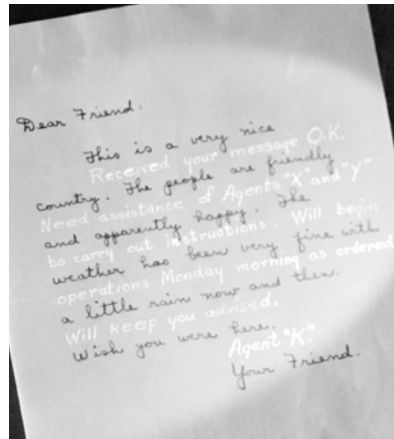 Dear Friend.
This is a very nice
Received your message O.K.
country. The people are friendly
Need assistance of Agents "X" and "Y"
and apparently happy. The
to carry out instructions. Will begin
weather has been very fine with
operations Monday morning as ordered
a little rain now and then.
Will keep you advised.
Wish you were here.
Agent "K".
Your Friend.